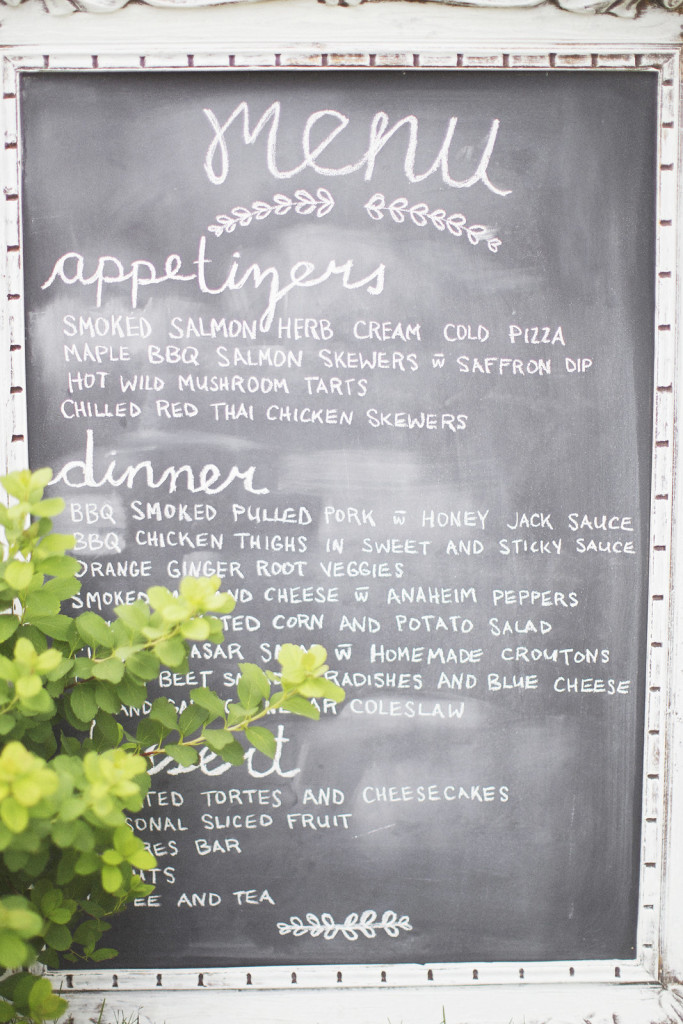 menu
appetizers
SMOKED SALMON HERB CREAM COLD PIZZA
MAPLE BBQ SALMON SKEWERS w̄ SAFFRON DIP
HOT WILD MUSHROOM TARTS
CHILLED RED THAI CHICKEN SKEWERS
dinner
BBQ SMOKED PULLED PORK w̄ HONEY JACK SAUCE
BBQ CHICKEN THIGHS IN SWEET AND STICKY SAUCE
ORANGE GINGER ROOT VEGGIES
SMOKED AND CHEESE w̄ ANAHEIM PEPPERS
CORN AND POTATO SALAD
w̄ HOMEMADE CROUTONS
BEET RADISHES AND BLUE CHEESE
COLESLAW
TORTES AND CHEESECAKES
SLICED FRUIT
BAR
AND TEA